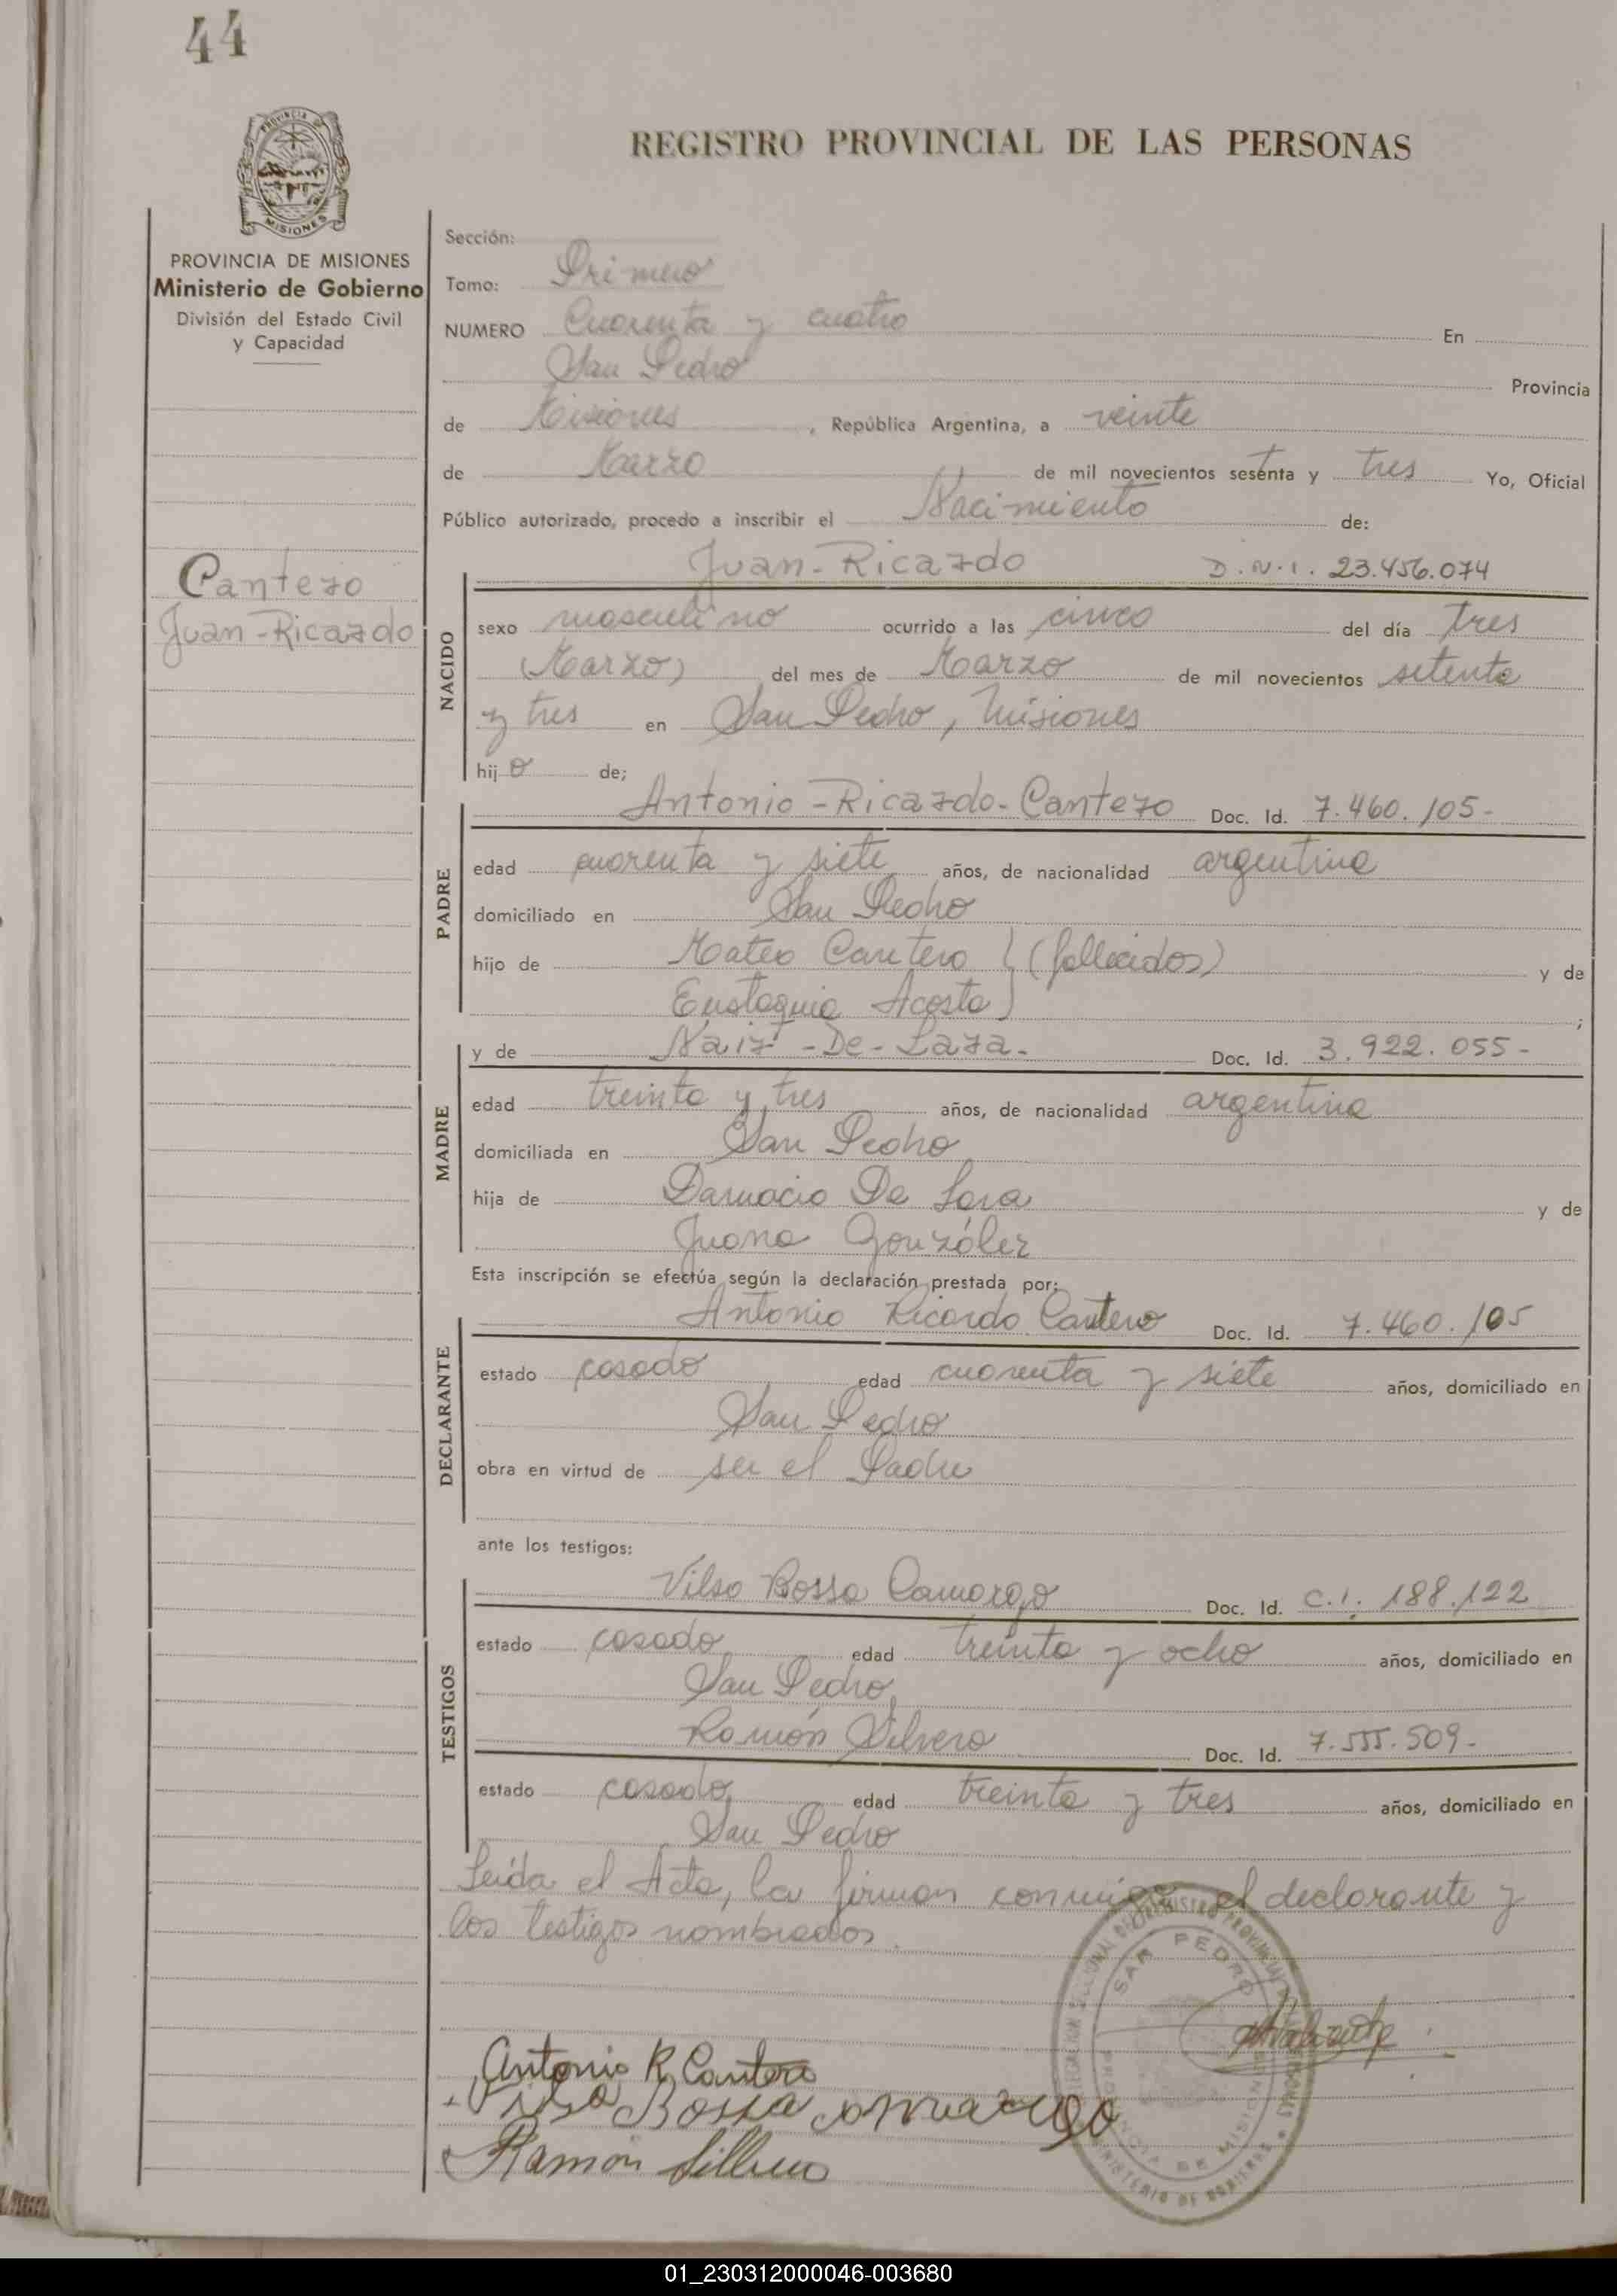 44
REGISTRO PROVINCIAL DE LAS PERSONAS
PROVINCIA DE MISIONES
Ministerio de Gobierno
División del Estado Civil
y Capacidad
Cantero
Juan-Ricardo
Sección:
Tomo: Primero
NUMERO Cuarenta y cuatro En
San Pedro Provincia
de Misiones, República Argentina, a veinte
de Marzo de mil novecientos sesenta y tres Yo, Oficial
Público autorizado, procedo a inscribir el Nacimiento de:
NACIDO
Juan-Ricardo D.N.I. 23.456.074
sexo masculino ocurrido a las cinco del día tres
(Marzo) del mes de Marzo de mil novecientos setenta
y tres en San Pedro, Misiones
hijo de;
PADRE
Antonio-Ricardo-Cantero Doc. Id. 7.460.105-
edad cuarenta y siete años, de nacionalidad argentina
domiciliado en San Pedro
hijo de Mateo Cantero } (fallecidos) y de
Eustaquia Acosta ;
MADRE
y de Nair-De-Lara- Doc. Id. 3.922.055-
edad treinta y tres años, de nacionalidad argentina
domiciliada en San Pedro
hija de De Lara y de
Juana González
Esta inscripción se efectúa según la declaración prestada por:
DECLARANTE
Antonio Ricardo Cantero Doc. Id. 7.460.105
estado casado edad cuarenta y siete años, domiciliado en
San Pedro
obra en virtud de ser el Padre
ante los testigos:
TESTIGOS
Vilso Bossa Camargo Doc. Id. C.I. 188.122
estado casado edad treinta y ocho años, domiciliado en
San Pedro
Ramón Silvero Doc. Id. 7.555.509-
estado casado edad treinta y tres años, domiciliado en
San Pedro
Leída el Acta, la firman conmigo el declarante y
los testigos nombrados.
SAN PEDRO
PROVINCIA DE MISIONES
MINISTERIO DE GOBIERNO
Antonio R Cantero
Vilso Bossa Camargo
Ramón Silvero
01_230312000046-003680